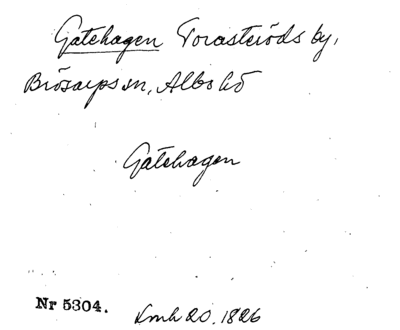 Gatehagen Torasteröds by,
Brösarps sn, Albo hd
Gatehagen
Nr 5304. Lmh 20. 1826